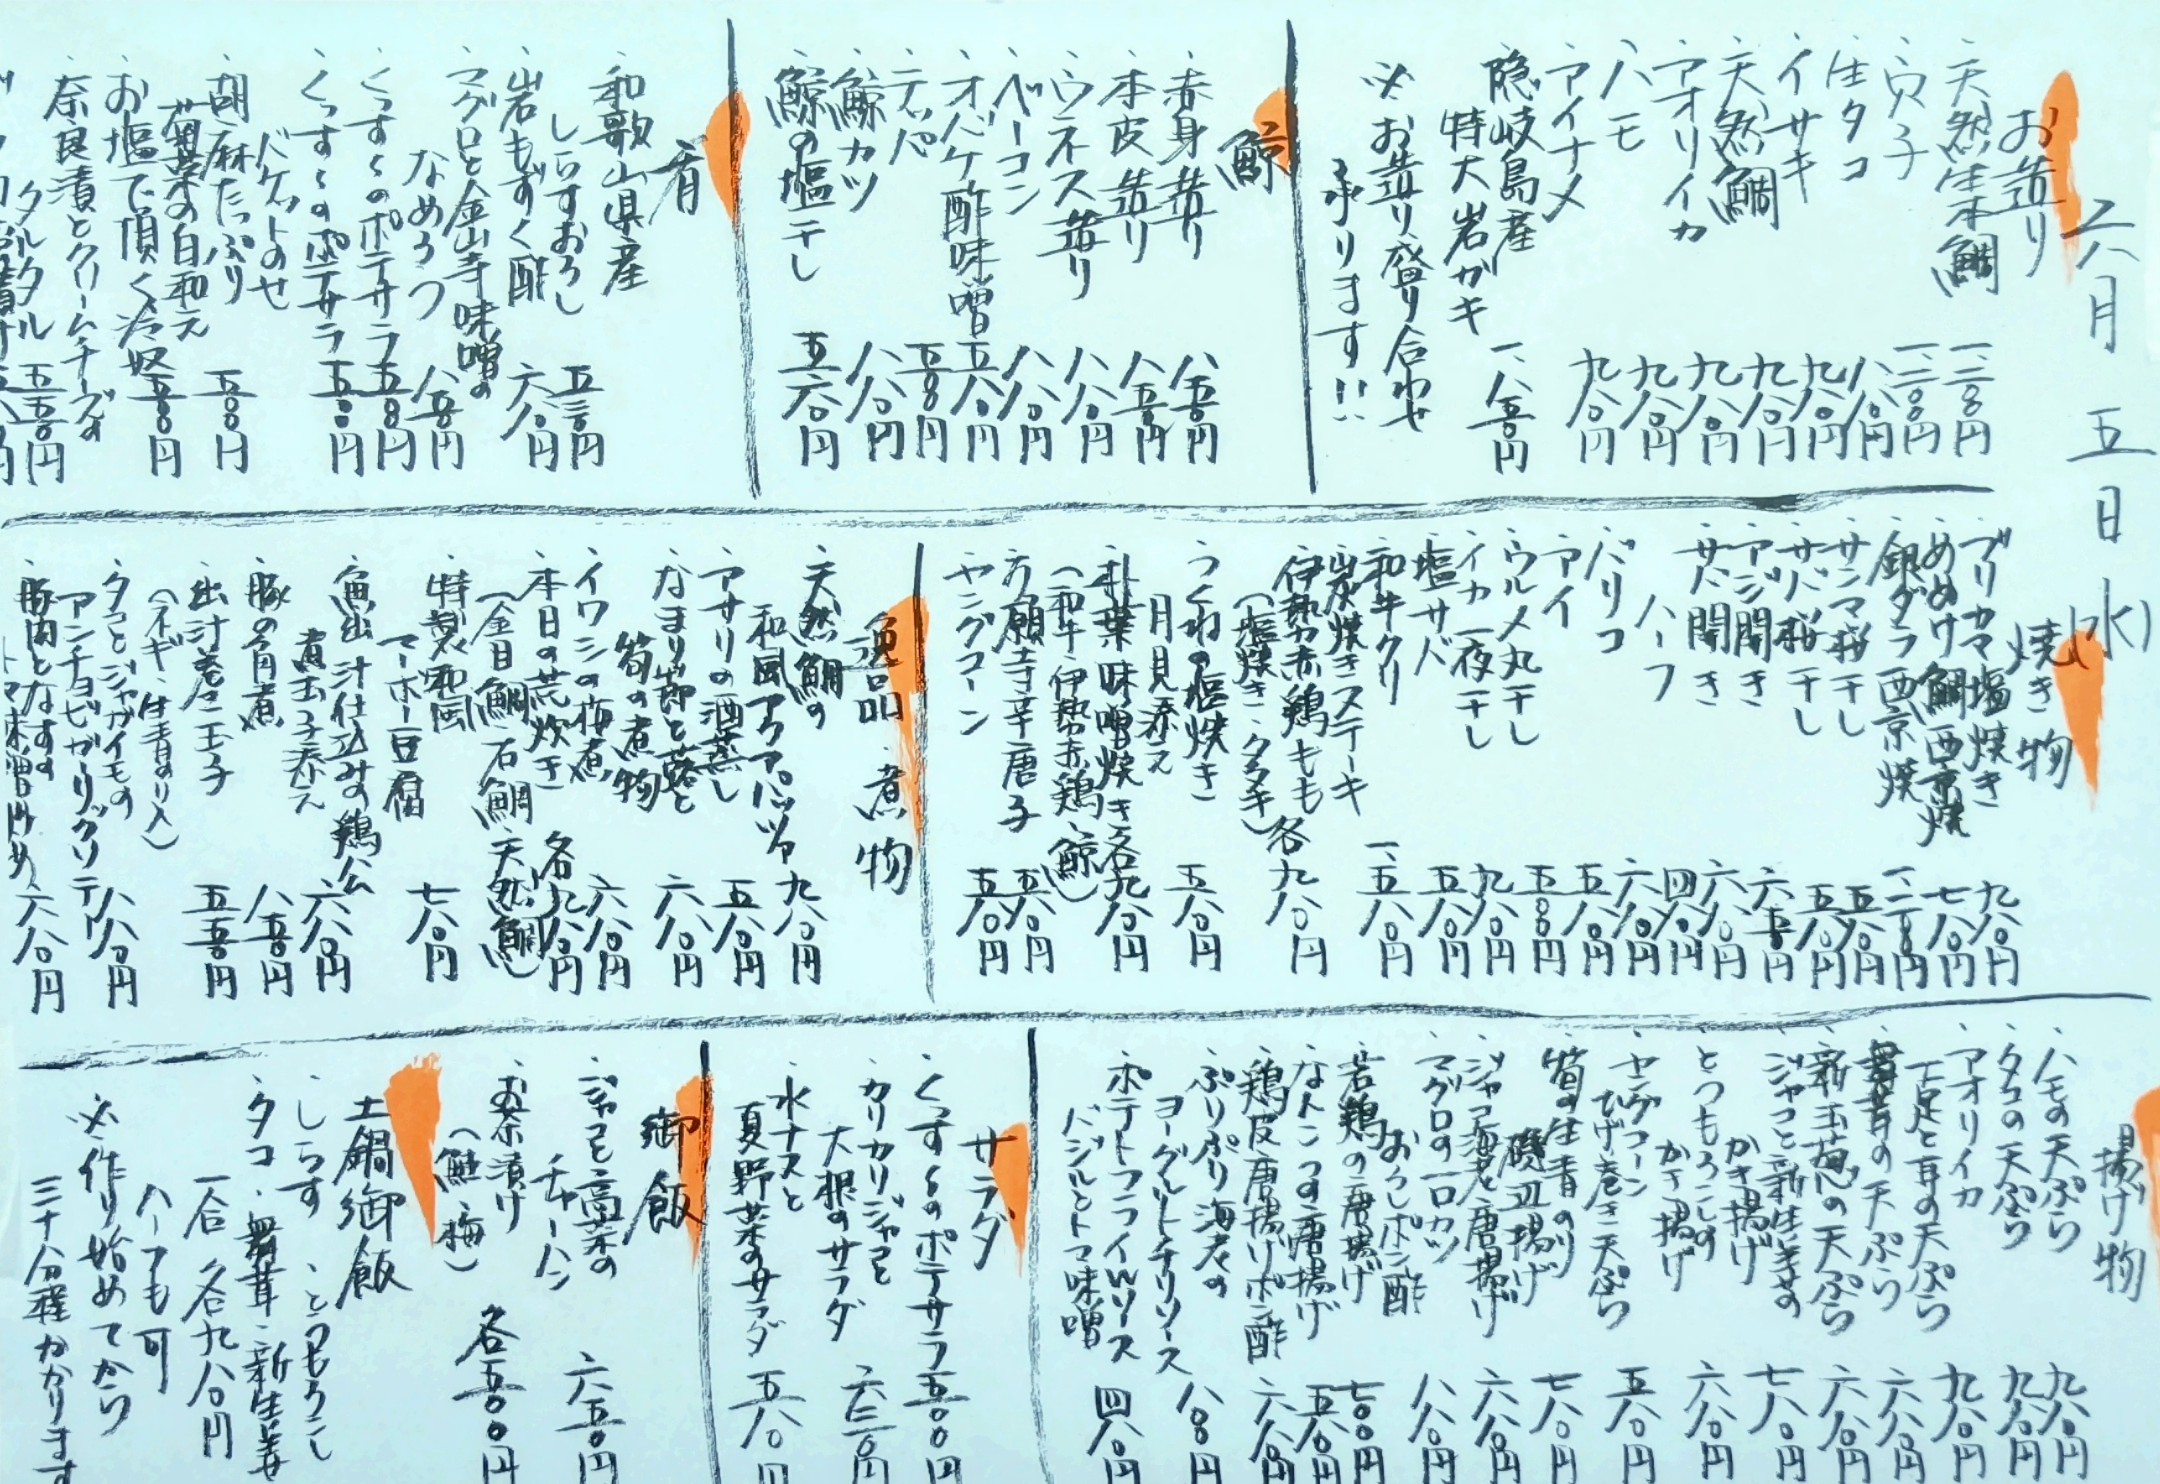 六月五日(水)
お造り
・天然生本鯛 一、二〇〇円
・穴子 一、二〇〇円
・生タコ 八八〇円
・イサキ 九八〇円
・天然鯛 九八〇円
・アオリイカ 九八〇円
・ハモ 九八〇円
・アイナメ 九八〇円
・隠岐島産
特大岩ガキ 一、八五〇円
※お造り盛り合わせ
承ります!!
鯨
・赤身造り 八五〇円
・本皮造り 八五〇円
・ウネス造り 八八〇円
・ベーコン 八八〇円
・オバケ酢味噌 五八〇円
・デッパ 五〇〇円
・鯨カツ 八八〇円
・鯨の塩干し 五六〇円
肴
・和歌山県産
しらすおろし 五三〇円
・岩もずく酢 六八〇円
・マグロと金山寺味噌の
なめろう 八五〇円
・くっすくのポテサラ 五〇〇円
・くっすくのポテサラ
バケットのせ 五五〇円
・胡麻たっぷり
菊菜の白和え 五〇〇円
・お塩で頂く冷奴 五〇〇円
・奈良漬とクリームチーズの
タルタル 五五〇円
焼き物
・ブリカマ塩焼き 九八〇円
・めぬけ鯛西京焼 七八〇円
・銀ダラ西京焼 一、二〇〇円
・サンマ桜干し 五五〇円
・サバ桜干し 五八〇円
・アジ開き 六五〇円
・サバ開き 六八〇円
ハーフ 四八〇円
・バリコ 六八〇円
・アイ 五八〇円
・ウルメ丸干し 五〇〇円
・イカ一夜干し 九八〇円
・塩サバ 五八〇円
・和牛クリ
炭焼きステーキ 一、五八〇円
・伊勢赤鶏もも 各九八〇円
(塩焼き・タタキ)
・つくねの塩焼き
月見添え 五八〇円
・朴葉味噌焼き 各九八〇円
(和牛・伊勢赤鶏・鯨)
・万願寺辛唐子 五八〇円
・ヤングコーン 五八〇円
逸品 煮物
・天然鯛の
和風アクアパッツァ 九八〇円
・アサリの酒蒸し 五八〇円
・なまり節と蕗と
筍の煮物 六八〇円
・イワシの梅煮 六八〇円
・本日の荒炊き 各九八〇円
(金目鯛・石鯛・天然鯛)
・特製和風
マーボー豆腐 七八〇円
・魚出汁仕込みの鶏公
煮玉子添え 六八〇円
・豚の角煮 八五〇円
・出汁巻き玉子 五五〇円
(ネギ・生青のり入)
・タコとジャガイモの
アンチョビガーリックソテー 八八〇円
・豚肉となすの
トマト味噌炒め 六八〇円
揚げ物
・ハモの天ぷら 九八〇円
・タコの天ぷら 九八〇円
・アオリイカ
下足と耳の天ぷら 九八〇円
・舞茸の天ぷら 六八〇円
・新玉葱の天ぷら 六八〇円
・ジャコと新生姜の
かき揚げ 七八〇円
・とうもろこしの
かき揚げ 六八〇円
・ヤングコーン
ひげ巻き天ぷら 五八〇円
・筍の生青のり
磯辺揚げ 七八〇円
・ジャコ海老唐揚げ 六八〇円
・マグロの一口カツ
おろしポン酢 八八〇円
・若鶏の唐揚げ 七〇〇円
・なんこつの唐揚げ 五八〇円
・鶏皮唐揚げポン酢 六八〇円
・ぷりぷり海老の
ヨーグルトチリソース 八八〇円
・ポテトフライWソース
バジルとトマ味噌 四八〇円
サラダ
・くっすくのポテサラ 五〇〇円
・カリカリジャコと
大根のサラダ 六三〇円
・水ナスと
夏野菜のサラダ 五八〇円
御飯
・ジャコと高菜の
チャーハン 六五〇円
・お茶漬け
(鮭・梅) 各五〇〇円
土鍋御飯
・しらす ・とうもろこし
・タコ ・舞茸・新生姜
一合 各九八〇円
ハーフも可
※作り始めてから
三十分程かかります